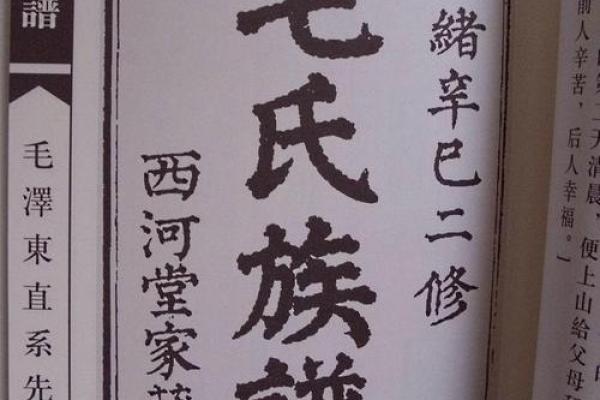 緒辛巳二修
毛氏族譜
西河堂家
譜
毛澤東直系先
天清晨，便上山給父母
前人辛苦，后人幸福。」